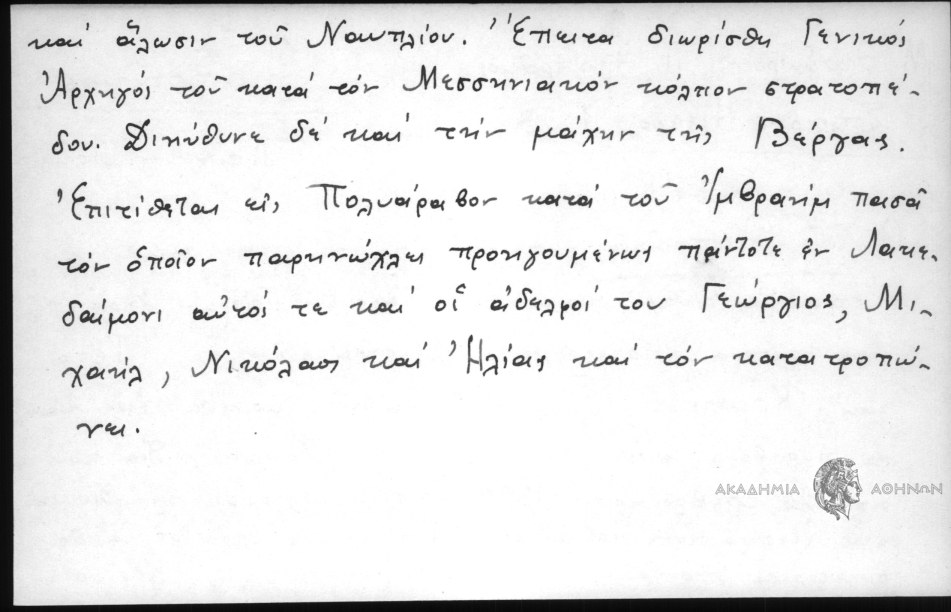 καί ἅλωσιν τοῦ Ναυπλίου. Ἔπειτα διωρίσθη Γενικός
Ἀρχηγός τοῦ κατά τόν Μεσσηνιακόν κόλπον στρατοπέ-
δου. Διηύθυνε δέ καί τήν μάχην τῆς Βέργας.
Ἐπιτίθεται εἰς Πολυάραβον κατά τοῦ Ἰμβραήμ πασᾶ
τόν ὁποῖον παρηνώχλει προηγουμένως πάντοτε ἐν Λακε-
δαίμονι αὐτός τε καί οἱ ἀδελφοί του Γεώργιος, Μι-
χαήλ, Νικόλαος καί Ἠλίας καί τόν κατατροπώ-
νει.
ΑΚΑΔΗΜΙΑ ΑΘΗΝΩΝ